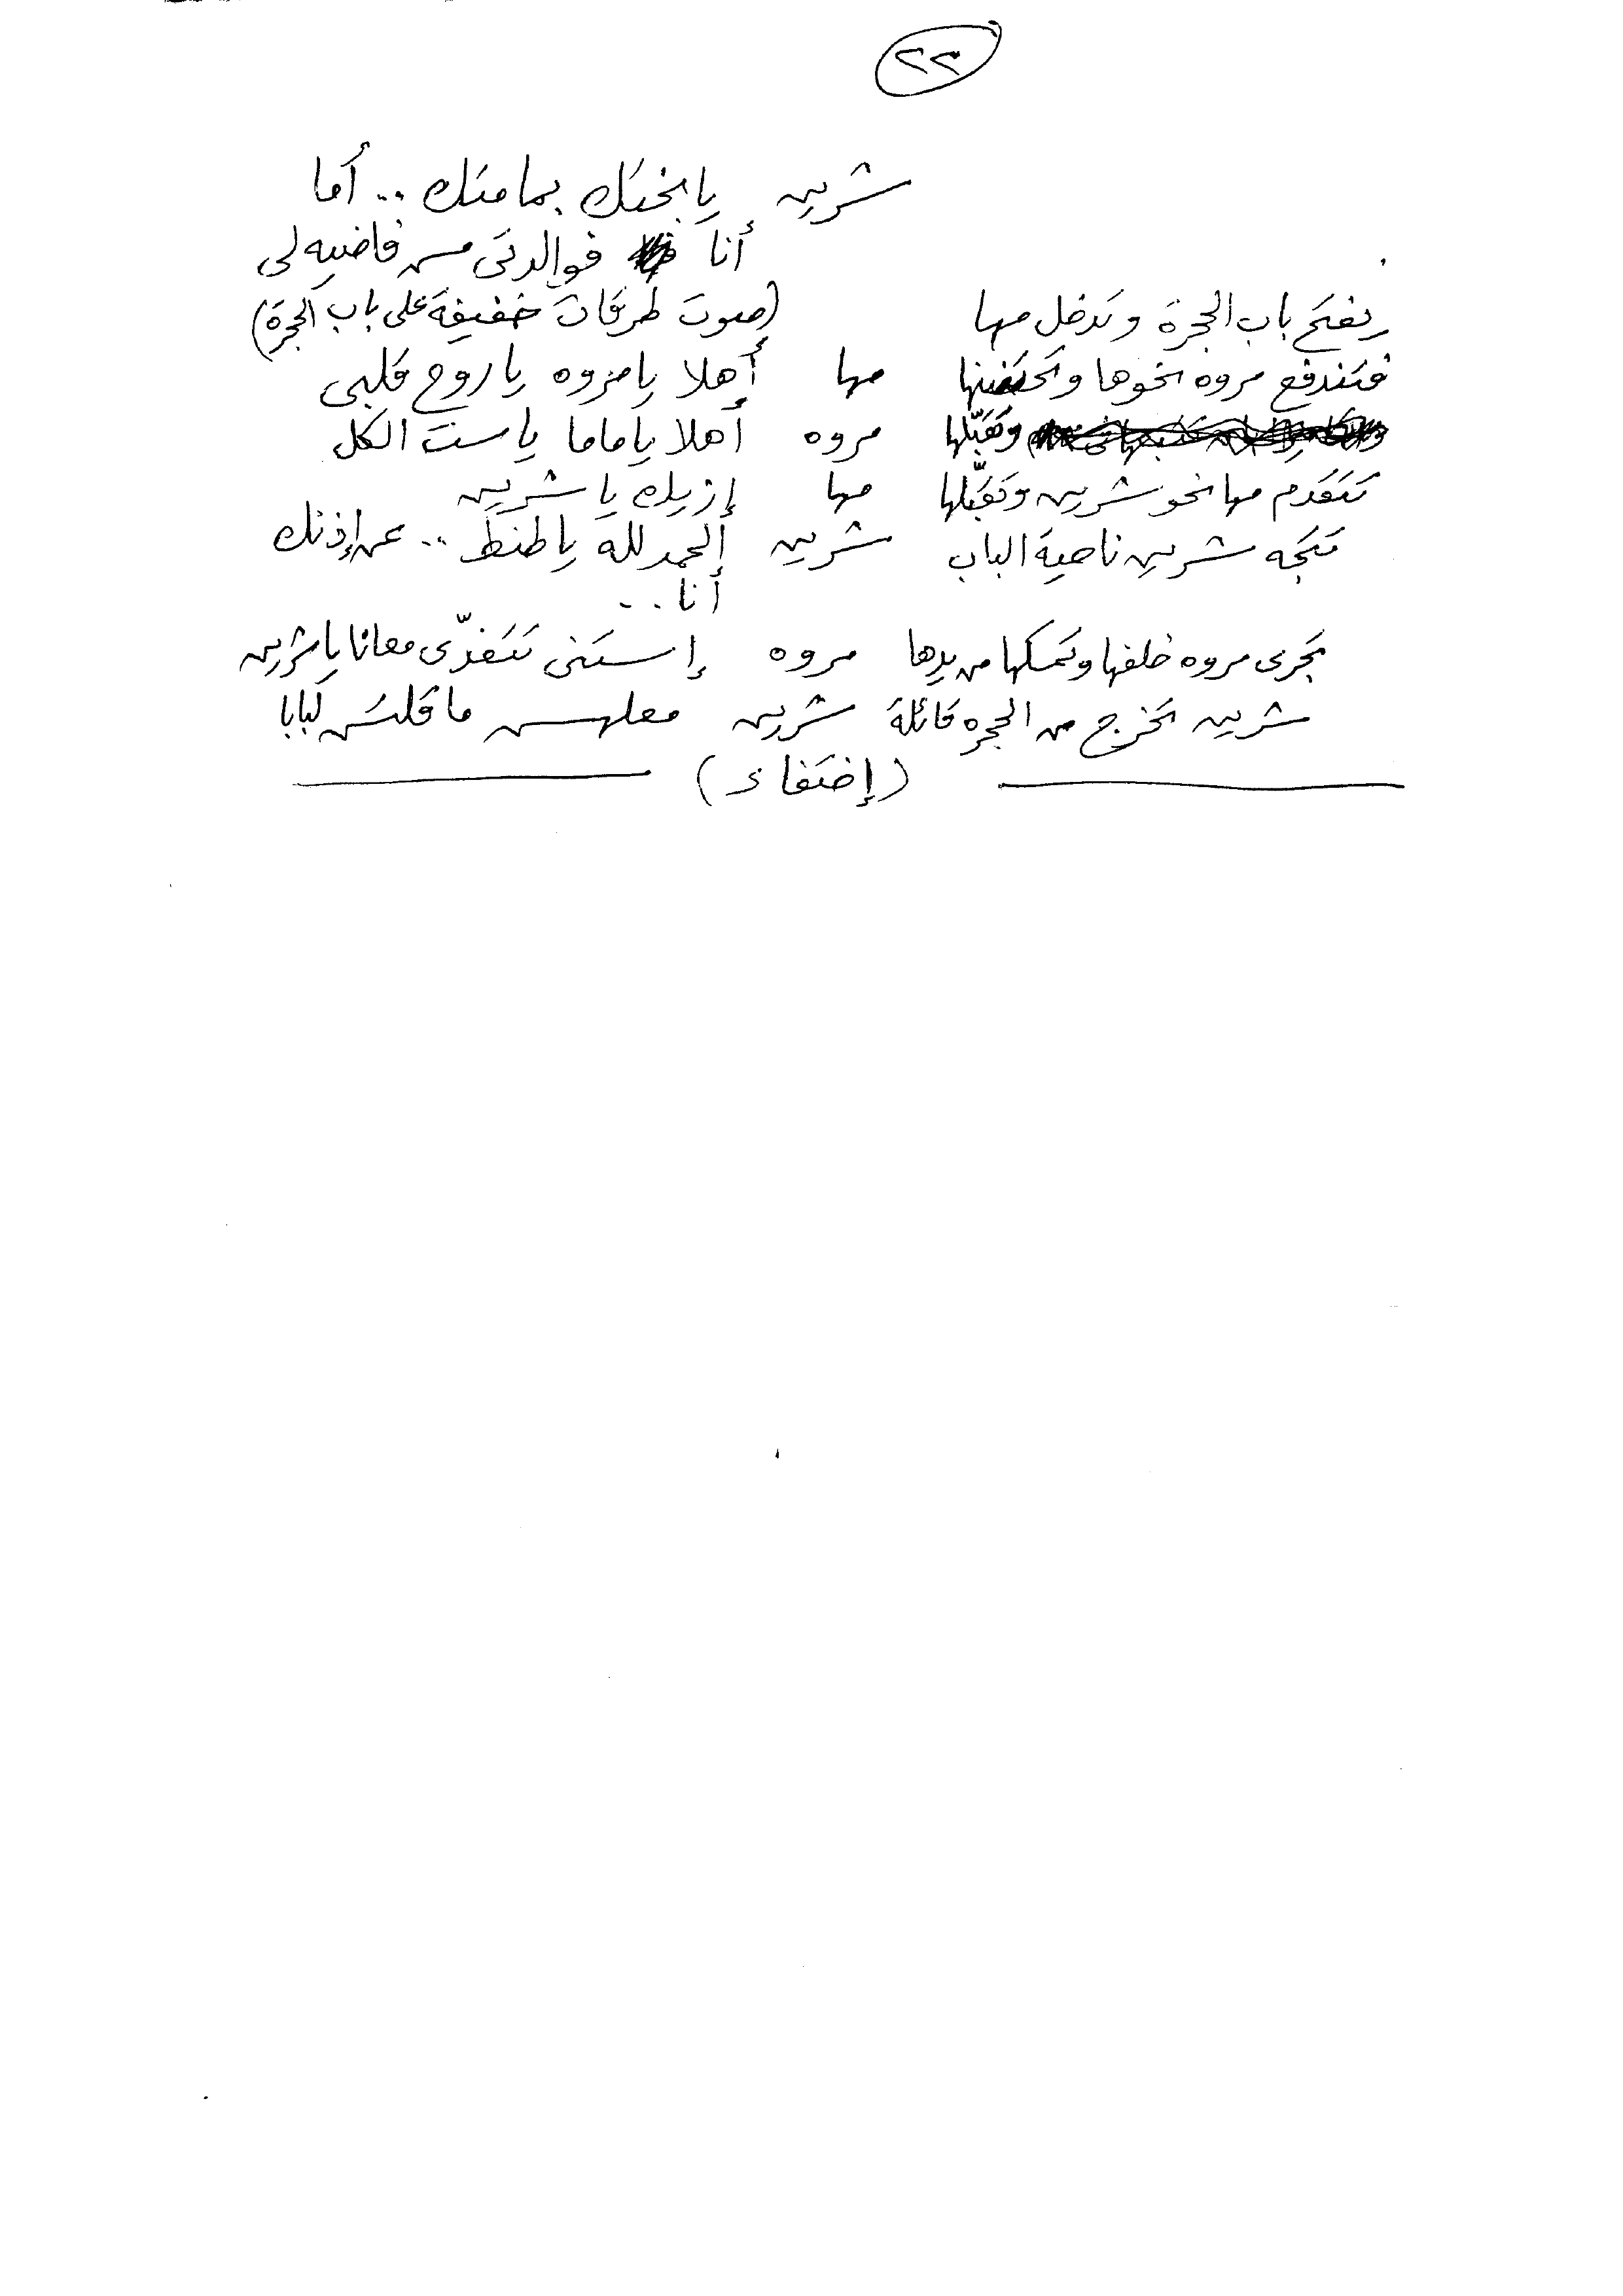 ٢٣
شرين يا بختك بمامتك .. أما
أنا فوالدتى مش فاضيه لى
يفتح باب الحجرة وتدخل مها (صوت طرقات خفيفة على باب الحجرة)
فتندفع مروه نحوها وتحتضنها مها أهلا يا مروه يا روح قلبى
وتقبّلها مروه أهلا يا ماما يا ست الكل
تتقدم مها نحو شرين وتقبّلها مها إزيك يا شرين
تتجه شرين ناحية الباب شرين الحمد لله يا طنط .. عن إذنك
أنا ..
تجرى مروه خلفها وتمسكها من يدها مروه إستنى تتغدّى معانا يا شرين
شرين تخرج من الحجره قائلة شرين معلهش ما قلتش لبابا
(إختفاء)